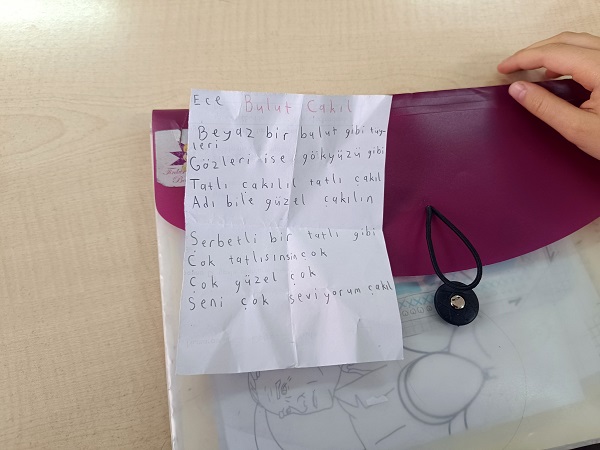 Ece
Bulut Cakıl
Beyaz bir bulut gibi tüy
leri
Gözleri ise gökyüzü gibi
Tatlı cakılıl tatlı çakıl
Adı bile güzel çakılın
Serbetli bir tatlı gibi
Çok tatlısınsin çok
Çok güzel çok
Seni çok seviyorum çakıl